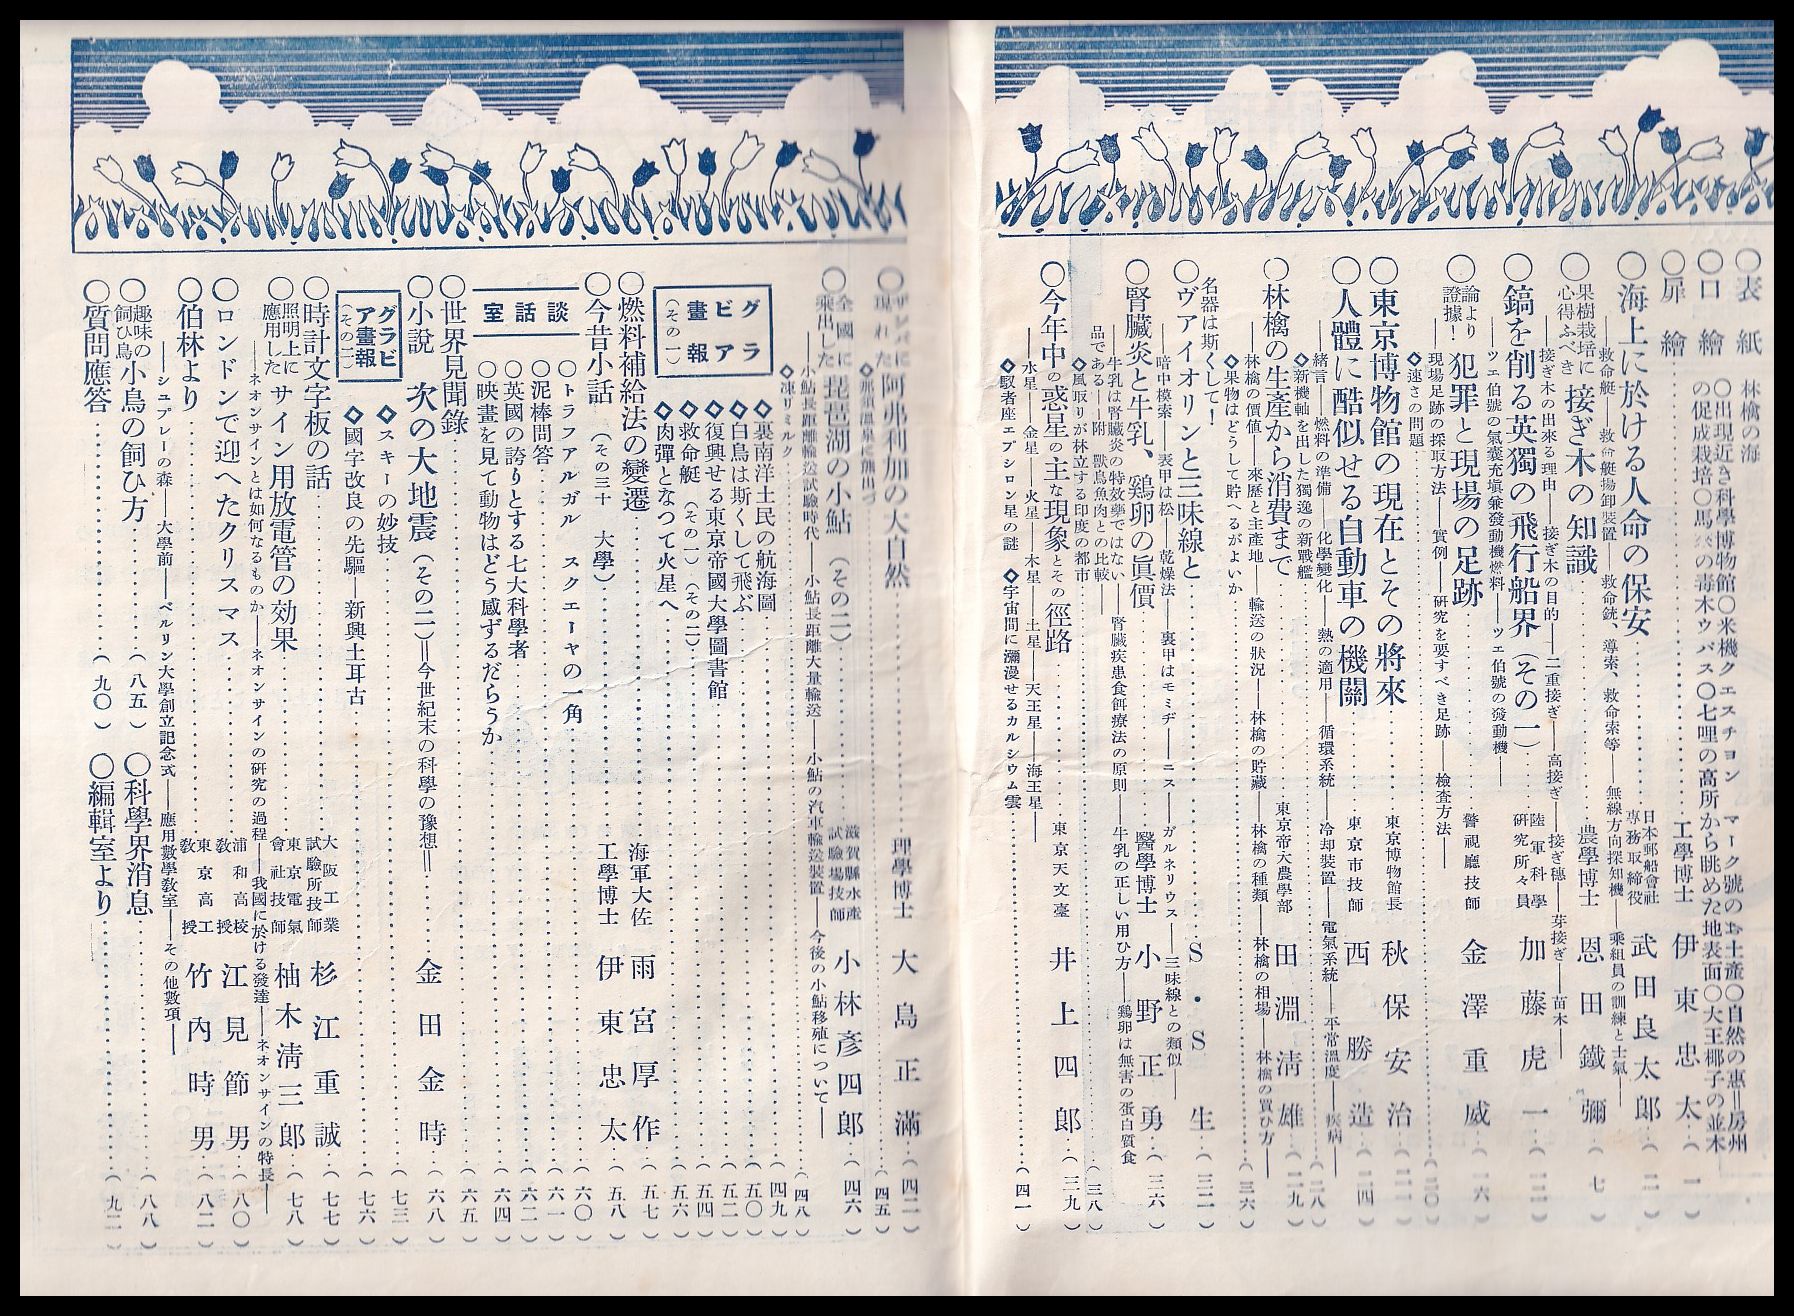 ○表紙 林檎の海
○口繪
○出現近き科學博物館○米機クエスチョン マーク號のお土產○自然の惠＝房州
の促成栽培○馬の毒木ウパス○七哩の高所から眺めた地表面○大王椰子の並木
○扉繪 工學博士 伊東忠太(一)
○海上に於ける人命の保安 日本郵船會社專務取締役 武田良太郎(二)
――救命艇――救命艇揚卸裝置――救命銃、導索、救命索等――無線方向探知機――乘組員の訓練と士氣――
○果樹栽培に心得ふべき 接ぎ木の知識 農學博士 恩田鐵彌(七)
接ぎ木の出來る理由――接ぎ木の目的――二重接ぎ――高接ぎ――接ぎ穗――芽接ぎ――苗木――
○鎬を削る英獨の飛行船界(その一) 陸軍科學研究所々員 加藤虎一
――ツエ伯號の氣囊充塡兼發動機燃料――ツエ伯號の發動機――
○論より證據! 犯罪と現場の足跡 警視廳技師 金澤重威(一六)
現場足跡の採取方法――實例――硏究を要すべき足跡――檢査方法――
◇速さの問題(二〇)
○東京博物館の現在とその將來 東京博物館長 秋保安治
○人體に酷似せる自動車の機關 東京市技師 西勝造(二四)
緖言――燃料の準備――化學變化――熱の適用――循環系統――冷却裝置――電氣系統――平常溫度――疾病――
◇新機軸を出した獨逸の新戰艦(二八)
○林檎の生產から消費まで 東京帝大農學部 田淵淸雄(二九)
林檎の價値――來歷と主產地――輸送の狀況――林檎の貯藏――林檎の種類――林檎の相場――林檎の買ひ方――
◇果物はどうして貯へるがよいか
名器は斯くして!
○ヴアイオリンと三味線と S・S生
――暗中模索――表甲は松――乾燥法――裏甲はモミヂ――ニス――ガルネリウス――三味線との類似――
○腎臟炎と牛乳、鷄卵の眞價 醫學博士 小野正勇(三六)
――牛乳は腎臟炎の特效藥ではない――腎臟疾患食餌療法の原則――牛乳の正しい用ひ方――鷄卵は無害の蛋白質食
品である――附 獸鳥魚肉との比較――
◇風取りが林立する印度の都市(三八)
○今年中の惑星の主な現象とその徑路 東京天文臺 井上四郎(三九)
水星――金星――火星――木星――土星――天王星――海王星――
◇馭者座エプシロン星の謎 ◇宇宙間に瀰漫せるカルシウム雲(四一)
○現れた阿弗利加の大自然 理學博士 大島正滿(四二)
◇那須溫泉に熊出づ(四五)
○全國に乘出した 琵琶湖の小鮎(その二) 滋賀縣水產試驗場技師 小林彥四郎(四六)
小鮎長距離輸送試驗時代――小鮎長距離大量輸送――小鮎の汽車輸送裝置――今後の小鮎移殖について――
◇凍りミルク(四八)
グラビア畫報(その一)
◇裏南洋土民の航海圖(四九)
◇白鳥は斯くして飛ぶ(五〇)
◇復興せる東京帝國大學圖書館(五二)
◇救命艇(その一)(その二)(五四)
◇肉彈となつて火星へ(五六)
○燃料補給法の變遷 海軍大佐 雨宮厚作(五七)
○今昔小話(その三十 大學) 工學博士 伊東忠太(五八)
談話室
○トラフアルガル スクエーヤの一角(六〇)
○泥棒問答(六一)
○英國の誇りとする七大科學者(六二)
○映畫を見て動物はどう感ずるだらうか(六四)
○世界見聞錄(六五)
○小說 次の大地震(その二)＝今世紀末の科學の豫想＝ 金田金時(六八)
グラビア畫報(その二)
◇スキーの妙技(七三)
◇國字改良の先驅――新興土耳古(七六)
○時計文字板の話 大阪工業試驗所技師 杉江重誠(七七)
○照明上に應用した サイン用放電管の効果 東京電氣會社技師 柚木淸三郎(七八)
――ネオンサインとは如何なるものか――ネオンサインの硏究の過程――我國に於ける發達――ネオンサインの特長――
○ロンドンで迎へたクリスマス 浦和高校敎授 江見節男(八〇)
○伯林より 東京高工敎授 竹內時男(八二)
――シュプレーの森――大學前――ベルリン大學創立記念式――應用數學敎室――その他數項――
○趣味の飼ひ鳥 小鳥の飼ひ方(八五)
○科學界消息(八八)
○質問應答(九〇)
○編輯室より(九二)